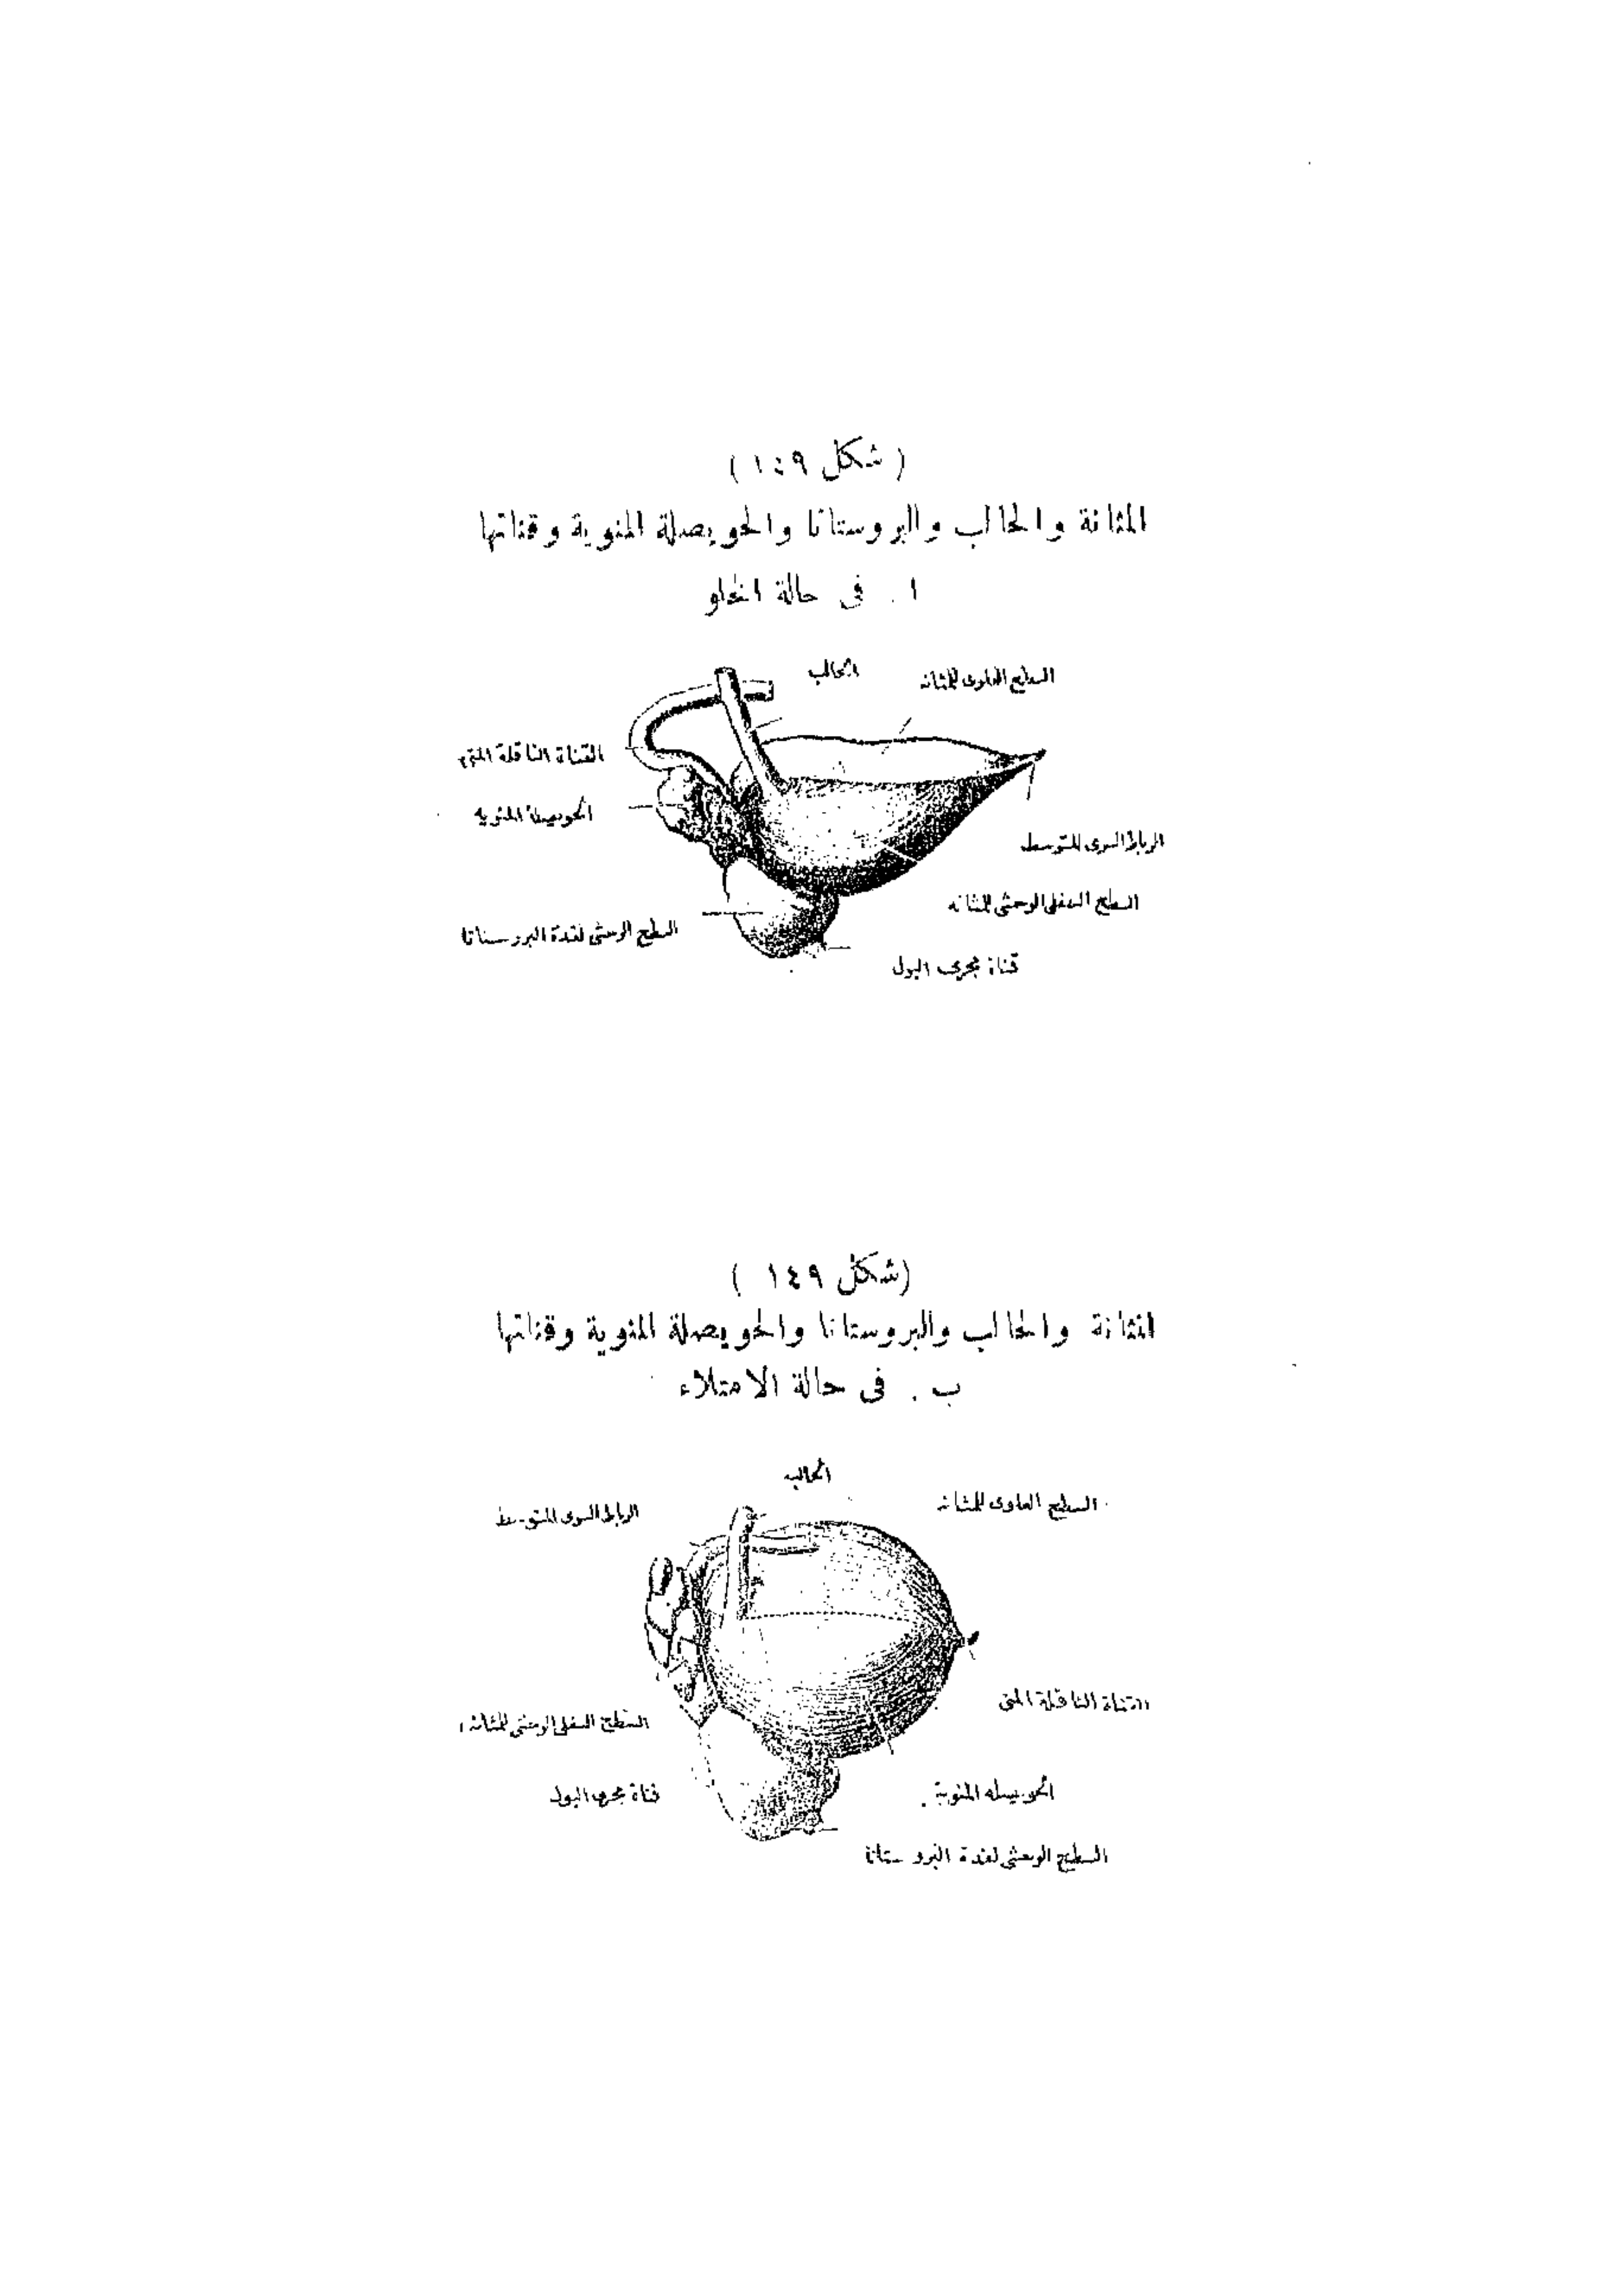 ( شكل ١٤٩ )
المثانة والحالب والبروستاتا والحويصلة المنوية وقناتها
ا . فى حالة الخلو
الحالب
السطح العلوى للمثانه
القناة الناقلة للمنى
الحويصلة المنويه
الرباط السرى المتوسط
السطح السفلى الوحشى للمثانه
السطح الوحشى لغدة البروستاتا
قناة مجرى البول
(شكل ١٤٩ )
المثانة والحالب والبروستاتا والحويصلة المنوية وقناتها
ب . فى حالة الامتلاء
الحالب
السطح العلوى للمثانه
الرباط السرى المتوسط
القناة الناقلة للمنى
السطح السفلى الوحشى للمثانه
الحويصله المنوية
قناة مجرى البول
السطح الوحشى لغدة البروستاتا